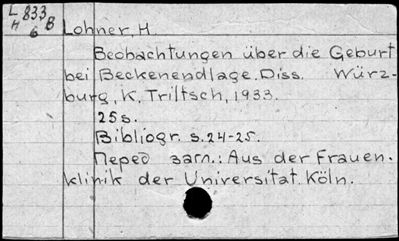 L 833
H 6 B
Lohner, H.
Beobachtungen über die Geburt
bei Beckenendlage. Diss. Würz-
burg, K. Triltsch, 1933.
25s.
Bibliogr. s. 24-25.
Перед загл.: Aus der Frauen-
klinik der Universitat. Köln.